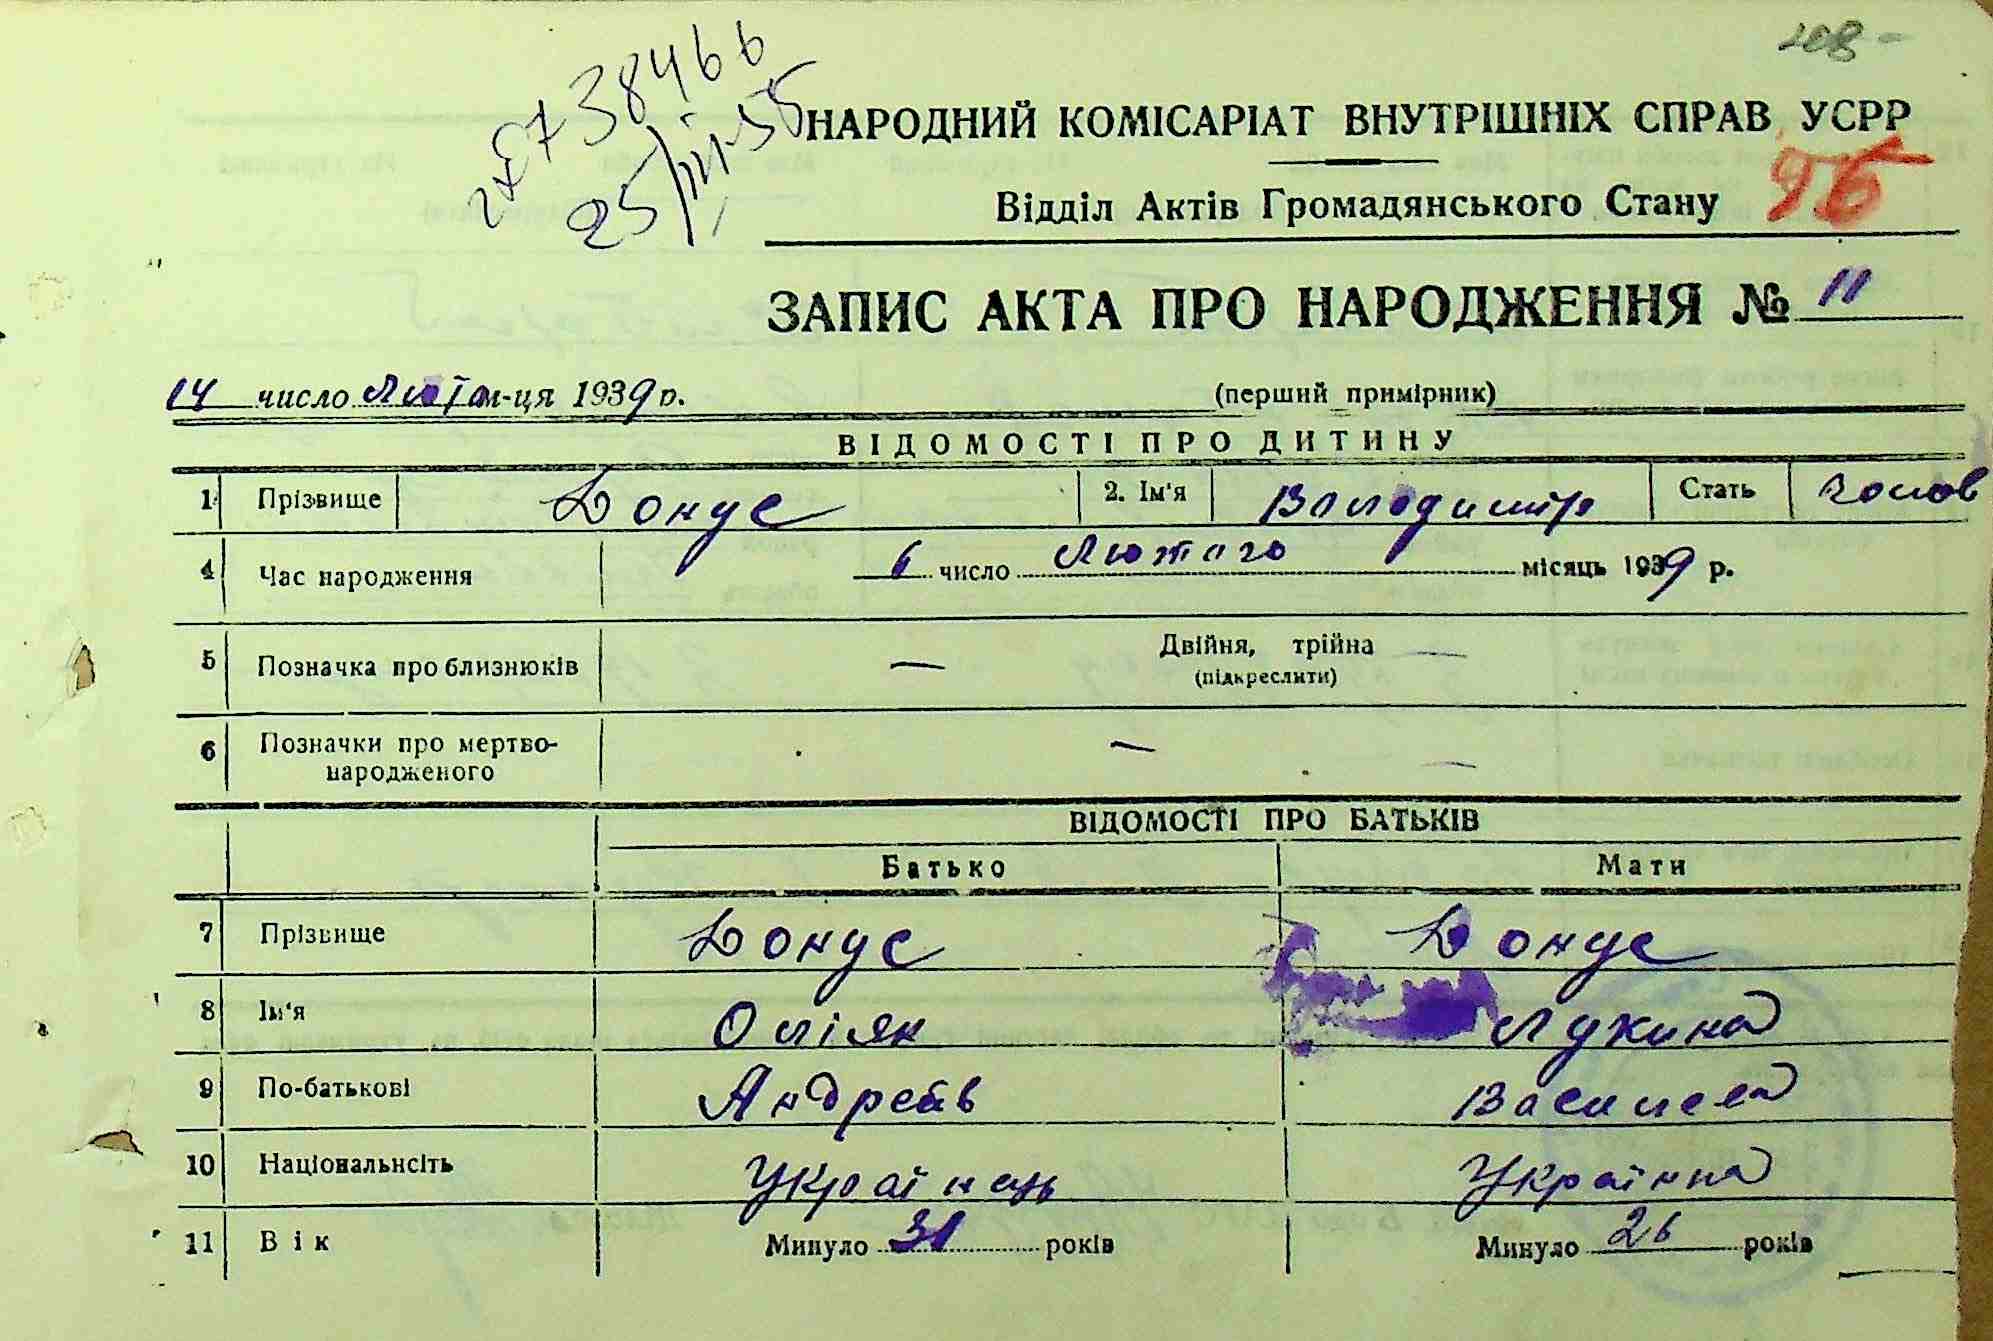 208-
738466
25/III-55
НАРОДНИЙ КОМІСАРІАТ ВНУТРІШНІХ СПРАВ УСРР
96
Відділ Актів Громадянського Стану
ЗАПИС АКТА ПРО НАРОДЖЕННЯ № 11
14 число Люта м-ця 1939 р. (перший примірник)
ВІДОМОСТІ ПРО ДИТИНУ
1 Прізвище Донус 2. Ім'я Володимір Стать Чолов
4 Час народження 6 число Лютаго місяць 1939 р.
5 Позначка про близнюків — Двійня, трійна —
(підкреслити)
6 Позначки про мертво-
народженого — —
ВІДОМОСТІ ПРО БАТЬКІВ
Батько Мати
7 Прізвище Донус Донус
8 Ім'я Оліян Лукина
9 По-батькові Андреїв Васильева
10 Національнсіть Українець Українка
11 Вік Минуло 31 років Минуло 26 років